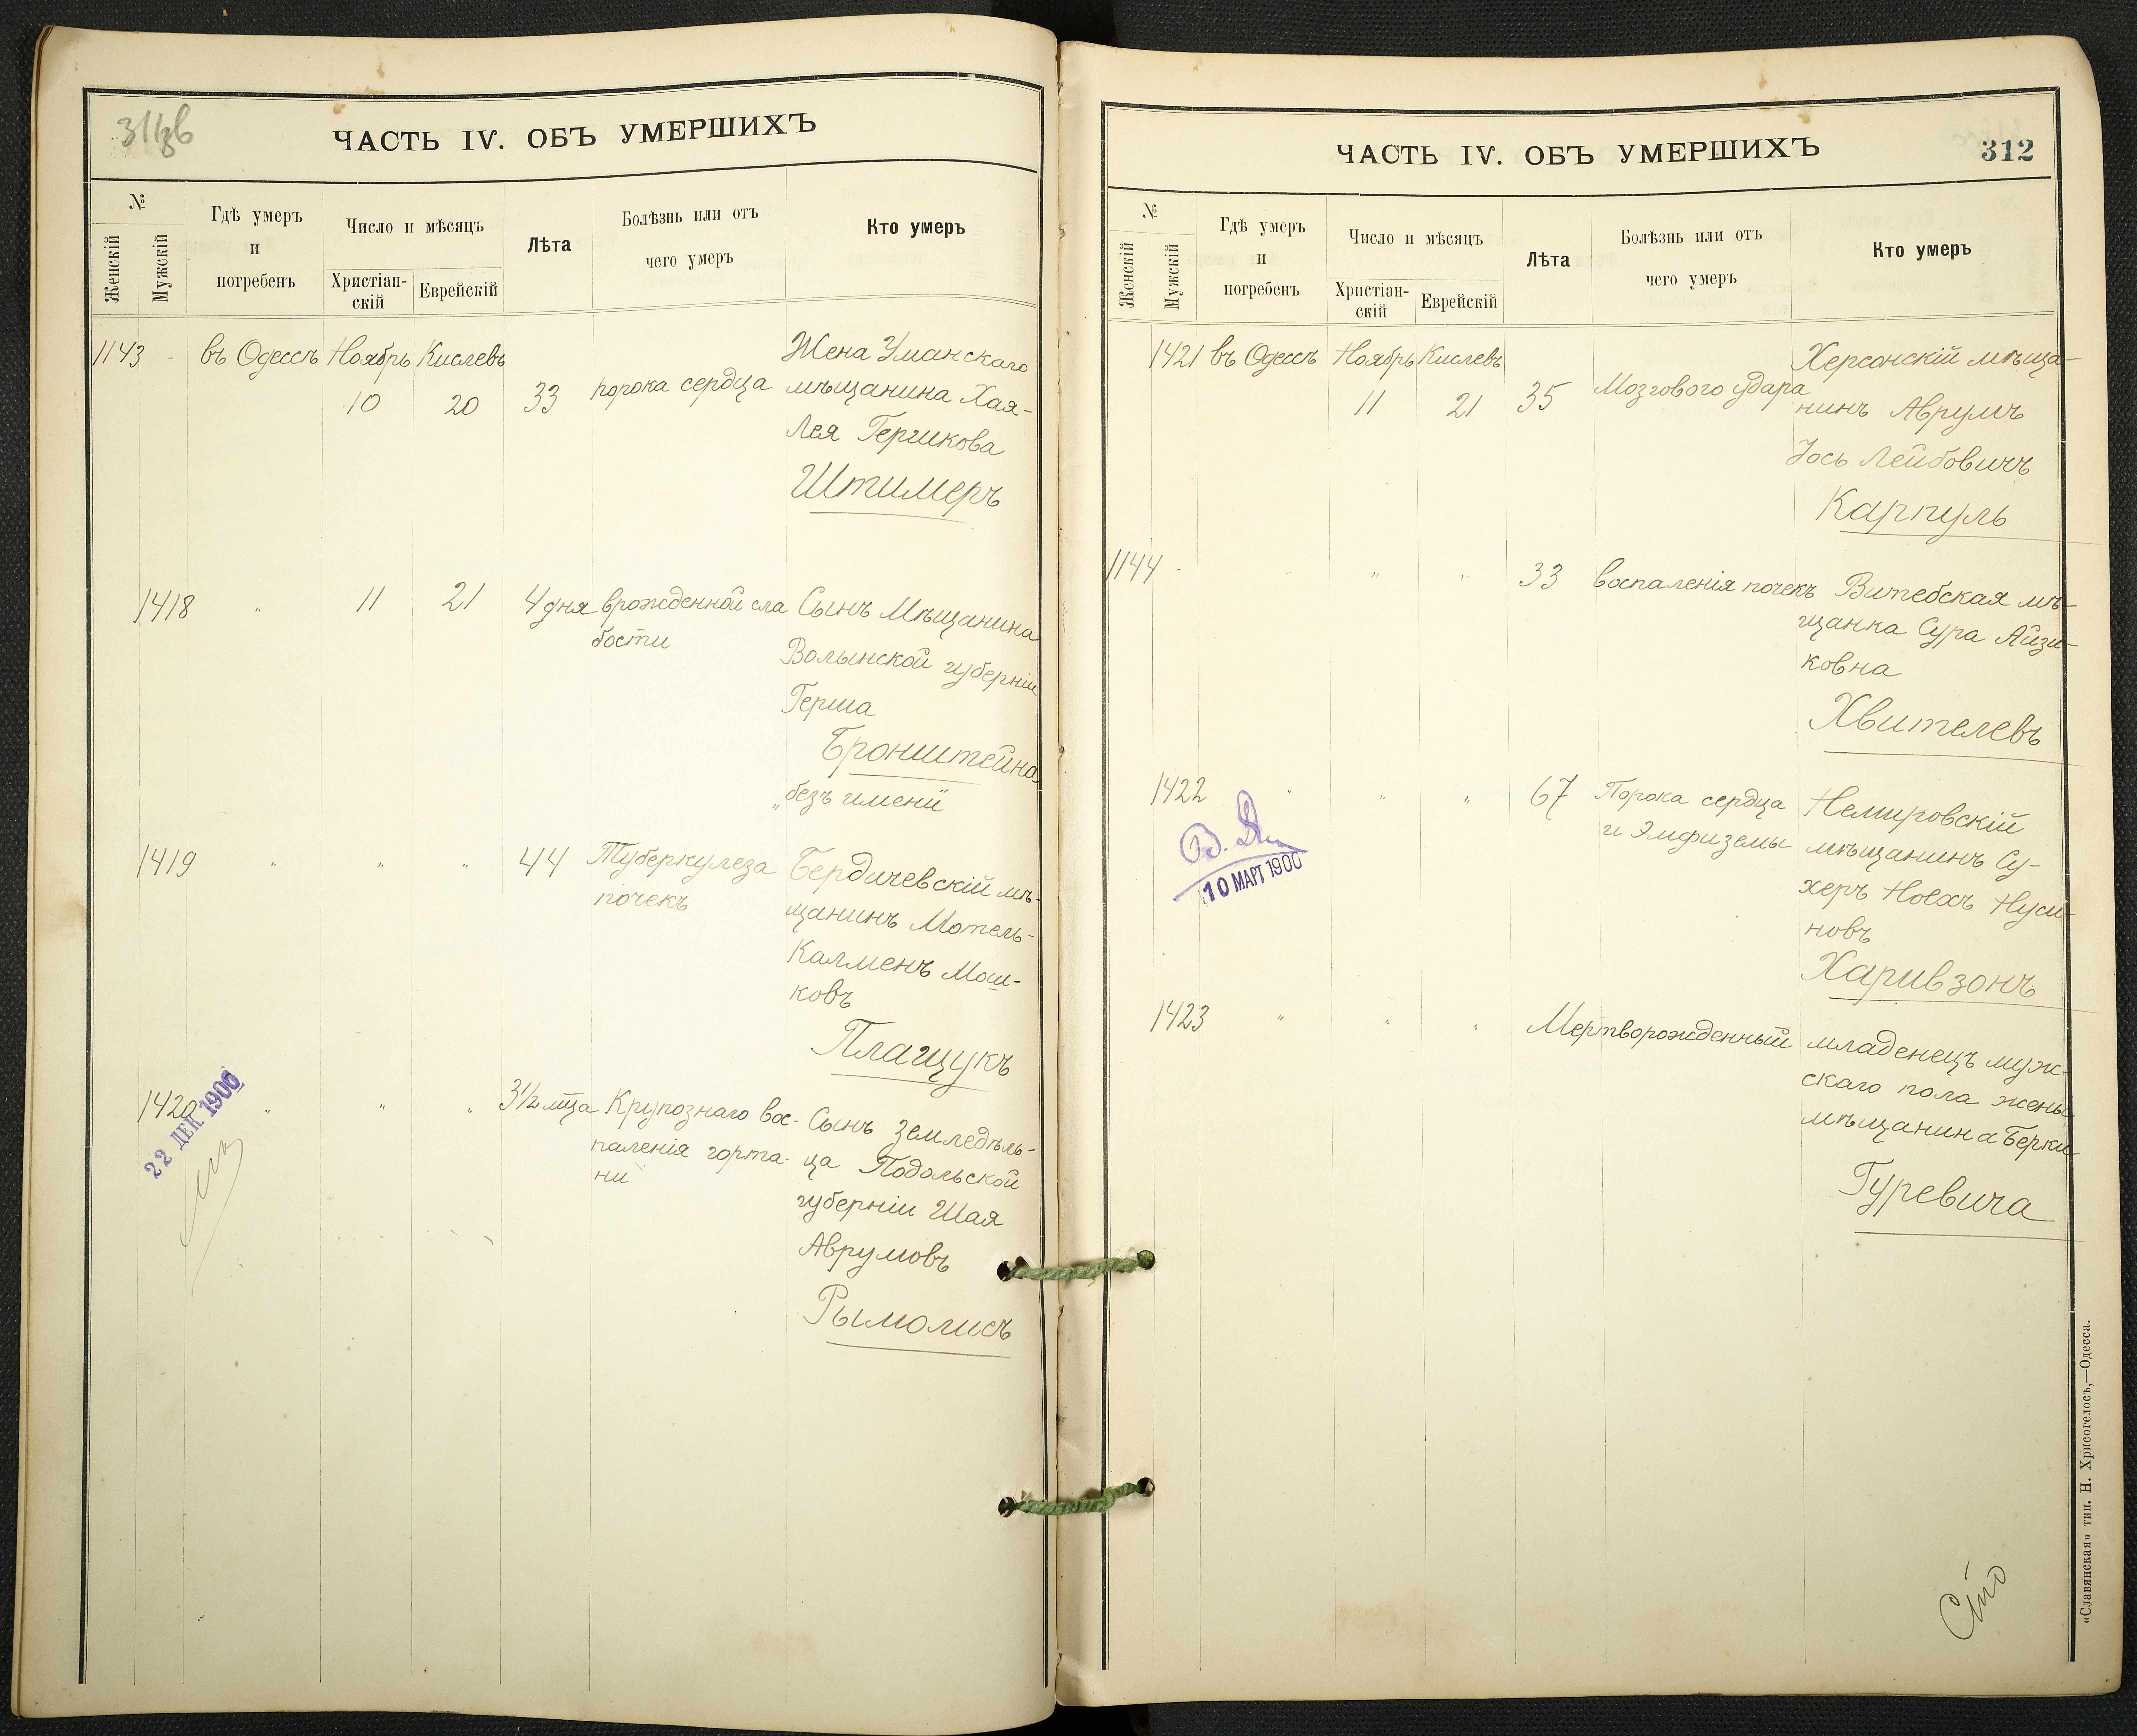 311об
ЧАСТЬ IV. ОБЪ УМЕРШИХЪ
№
Женскій
Мужскій
Гдѣ умеръ
и
погребенъ
Число и мѣсяцъ
Христіан-
скій
Еврейскій
Лѣта
Болѣзнь или отъ
чего умеръ
Кто умеръ
1143 - въ Одессѣ Ноябрь Кислевъ
10 20 33 порока сердца
Жена Уманскаго
мѣщанина Хая-
Лея Гершкова
Штимеръ
1418 " 11 21 4 дня врожденной сла
бости
Сынъ Мѣщанина
Волынской губерніи
Герша
Бронштейна
„безъ имени"
1419 " " " 44 Туберкулеза
почекъ
Бердичевскій мѣ-
щанинъ Мотель-
Калменъ Мош-
ковъ
Плащукъ
1420 " " " 3½ мѣца Крупознаго вос-
паленія горта-
ни
Сынъ земледѣль-
ца Подольской
губерніи Шая
Аврумовъ
Рымолисъ
22 ДЕК 1900
ЧАСТЬ IV. ОБЪ УМЕРШИХЪ
312
№
Женскій
Мужскій
Гдѣ умеръ
и
погребенъ
Число и мѣсяцъ
Христіан-
скій
Еврейскій
Лѣта
Болѣзнь или отъ
чего умеръ
Кто умеръ
1421 въ Одессѣ Ноябрь Кислевъ
11 21 35 Мозгового удара
Херсонскій мѣща-
нинъ Аврумъ
Іось Лейбовичъ
Карпуль
1144 - - " " 33 воспаленія почекъ
Витебская мѣ-
щанка Сура Айзи-
ковна
Хвителевъ
1422 " " " 67 Порока сердца
и Эмфиземы
Немировскій
мѣщанинъ Су-
херъ Ноехъ Нуси-
новъ
Харивзонъ
10 МАРТ 1900
1423 " " " Мертворожденный
младенецъ муж-
скаго пола жены
мѣщанина Берки
Гуревича
Сто
«Славянская» тип. Н. Хрисогелосъ,—Одесса.